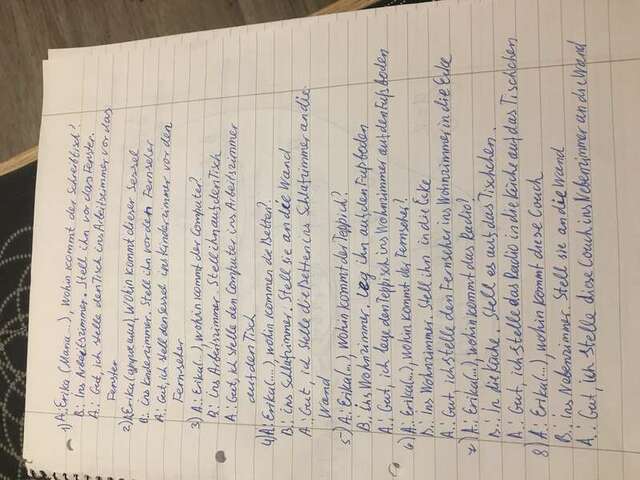 1) A.: Erika (Maria...), wohin kommt der Schreibtisch?
B.: Ins Arbeitszimmer. Stell ihn vor das Fenster.
A.: Gut, ich stelle den Tisch ins Arbeitszimmer vor das
Fenster
2) A: Erika (другое имя), wohin kommt dieser Sessel
B.: ins Kinderzimmer. Stell ihn vor den Fernseher
A: Gut, ich stell den Sessel ins Kinderzimmer vor den
Fernseher
3) A.: Erika(...), wohin kommt der Computer?
B.: ins Arbeitszimmer. Stell ihn auf den Tisch
A.: Gut, ich stelle den Computer ins Arbeitszimmer
auf den Tisch
4) A: Erika(....), wohin kommen die Betten?
B.: ins Schlafzimmer. Stell sie an die Wand
A.: Gut, ich stelle die Betten ins Schlafzimmer an die
Wand
5) A.: Erika(...), Wohin kommt der Teppich?
B.: ins Wohnzimmer. Leg ihn auf den Fußboden
A.: Gut, ich lege den Teppisch ins Wohnzimmer auf den Fußboden
6) A.: Erika(...), wohin kommt der Fernseher?
B.: Ins Wohnzimmer. Stell ihn in die Ecke
A.: Gut, ich stelle den Fernseher ins Wohnzimmer in die Ecke
7) A.: Erika(...), wohin kommt das Radio?
B.: In die Küche. Stell es auf das Tischchen.
A.: Gut, ich stelle das Radio in die Küche auf das Tischchen
8) A.: Erika(...), wohin kommt diese Couch
B.: ins Nebenzimmer. Stell sie an die Wand
A.: Gut, ich stelle diese Couch ins Nebenzimmer an die Wand